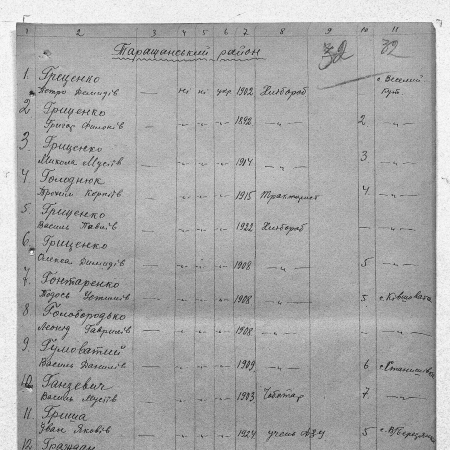 1 2 3 4 5 6 7 8 9 10 11
Таращанський район 72
1. Гриценко с. Веселий
Петро Демидів — ні ні укр 1902 Хлібороб Кут
2. Гриценко
Григор — -"- -"- -"- 1892 -"- 2 -"-
3. Гриценко
Микола Мусіїв — -"- -"- -"- 1914 -"- 3 -"-
4. Голоднюк
Трохим Карпів — -"- -"- -"- 1915 Тракторист 4 -"-
5. Гриценко
Василь Павлів — -"- -"- -"- 1922 Хлібороб -"-
6. Гриценко
Олекса Демидів — -"- -"- -"- 1908 -"- 5 -"-
7. Гонтаренко
Тодось Устимів — -"- -"- -"- 1908 -"- 5 с. Ківшовата
8. Голобородько
Леонід Гаврилів — -"- -"- -"- 1908 -"- -"-
9. Гумоватий
Василь Данилів — -"- -"- -"- 1909 6 с. Станишівка
10. Ганцевич
Василь Мусіїв — -"- -"- -"- 1903 Чоботар 7 -"-
11. Гриша
Іван Яковів — -"- -"- -"- 1924 учень 5
12. Граждан